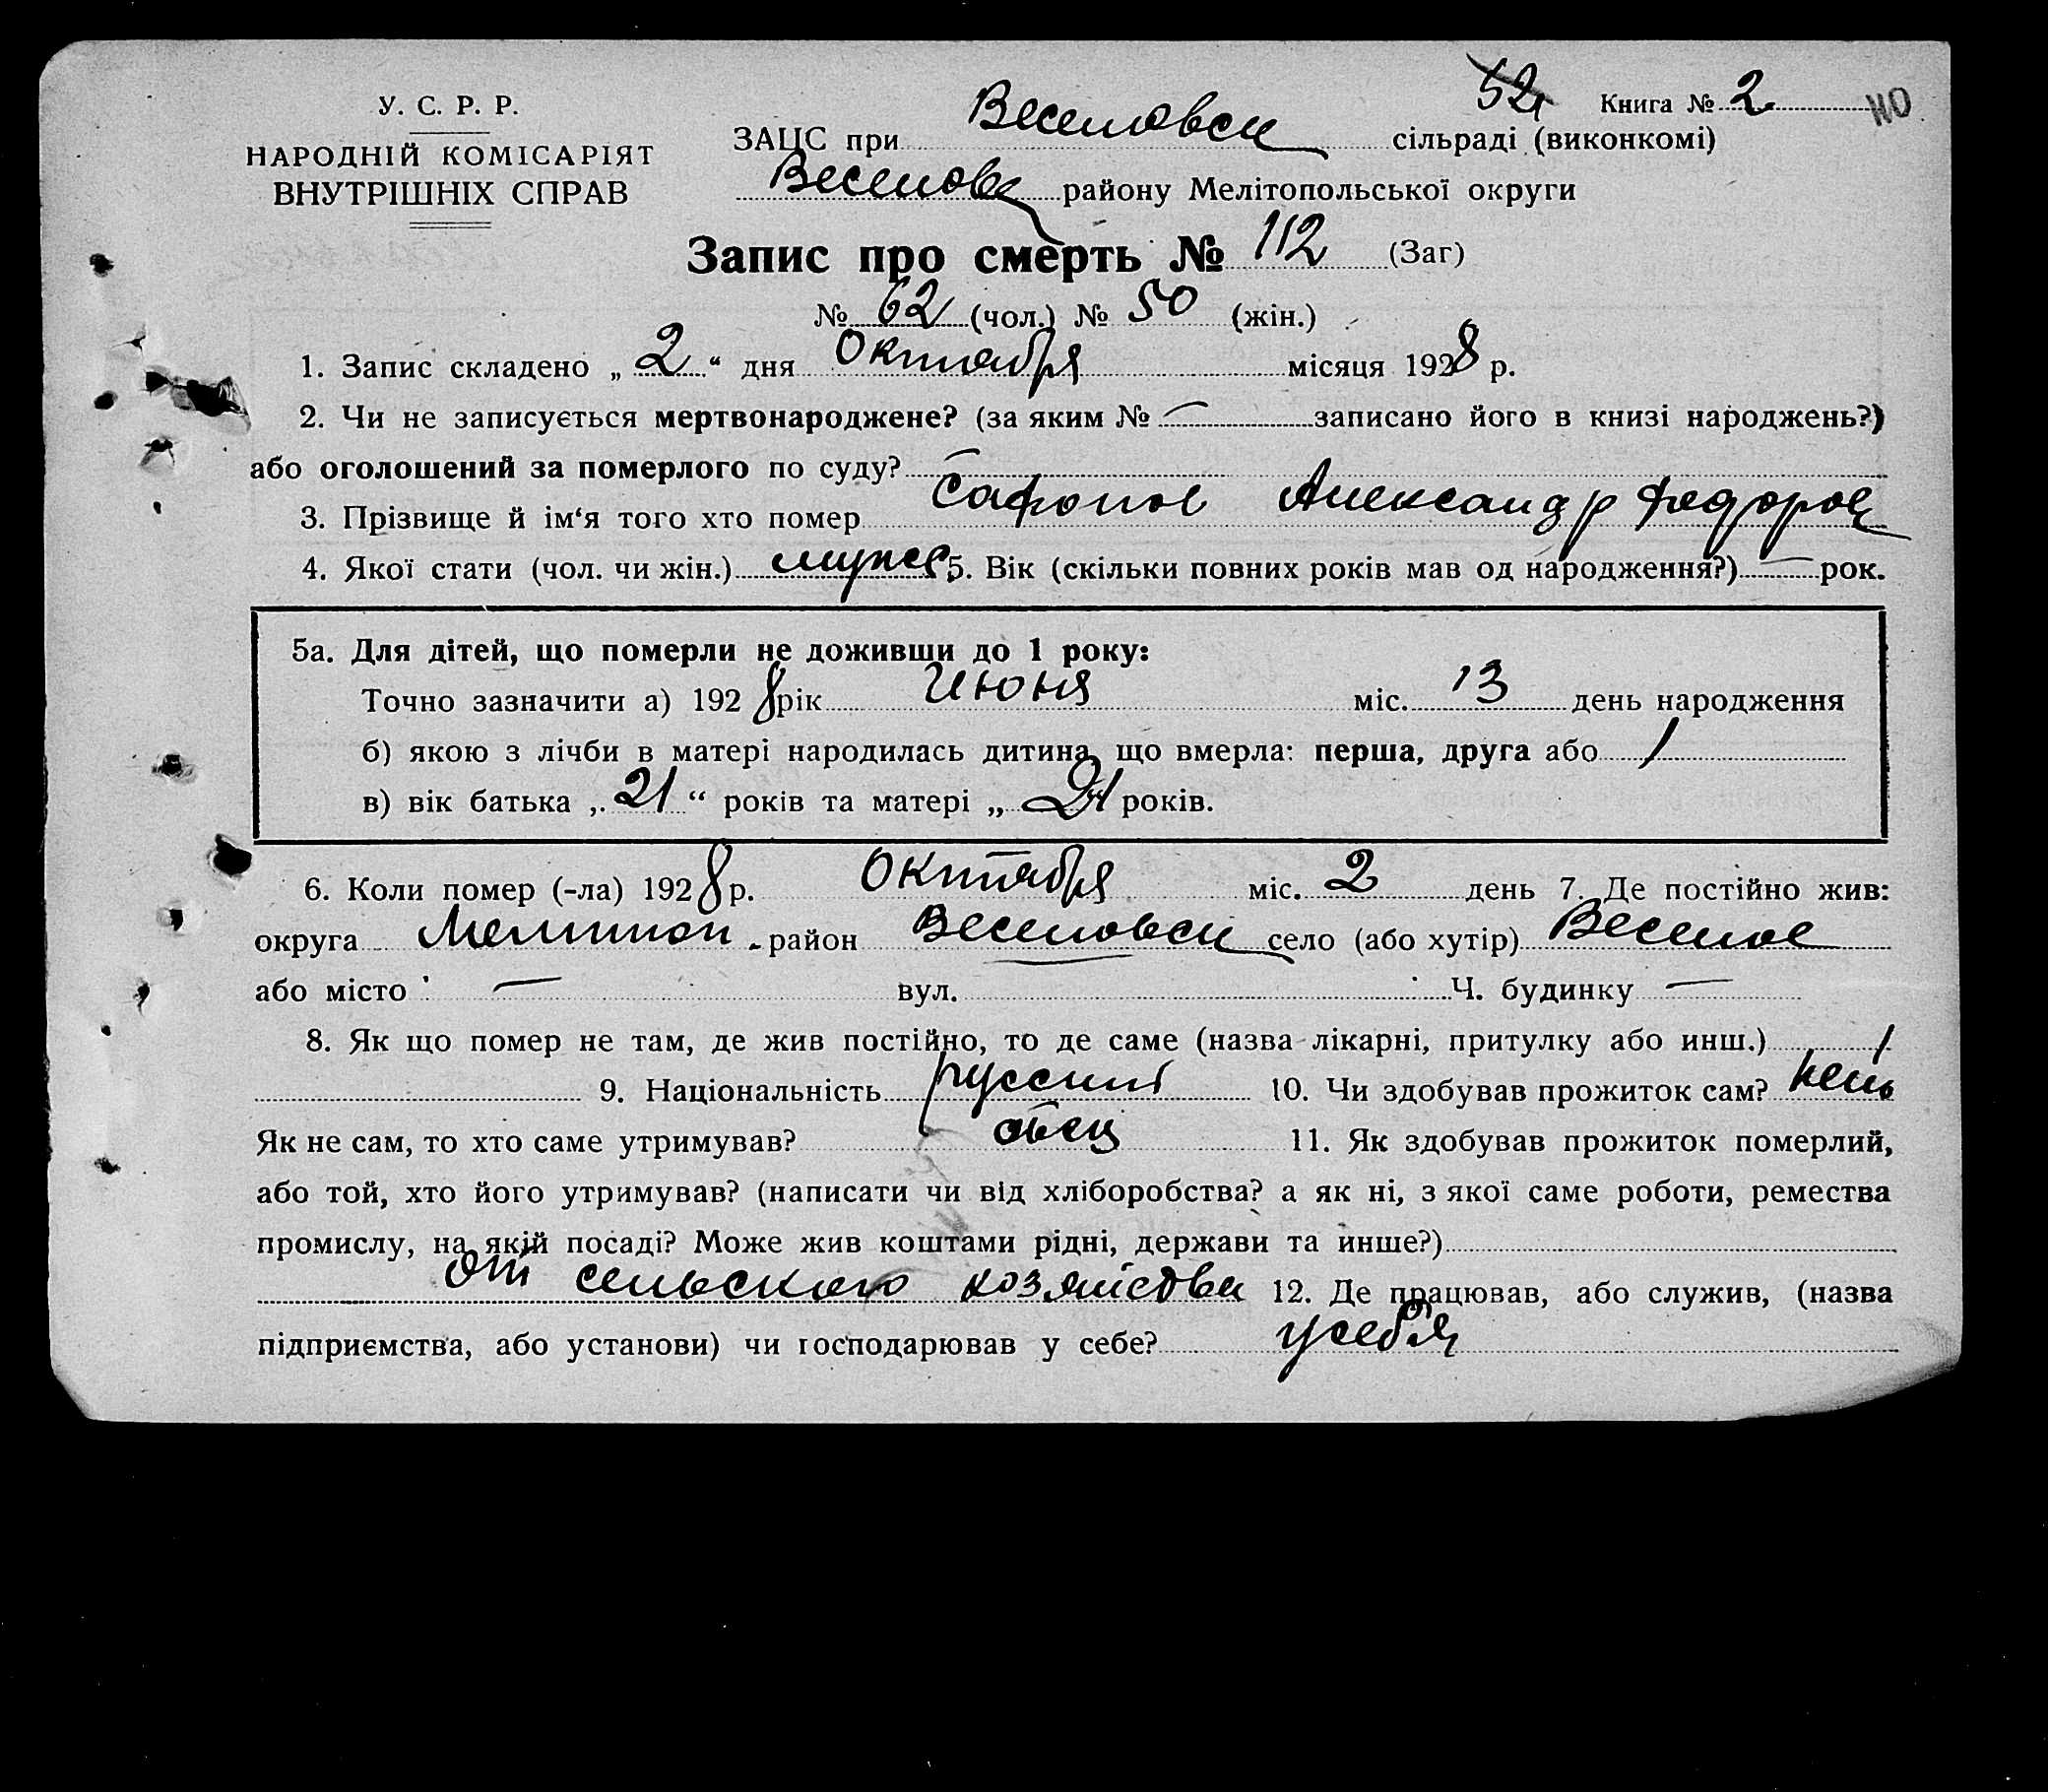 52 Книга № 2 110
У. С. Р. Р.
НАРОДНІЙ КОМІСАРІЯТ
ВНУТРІШНІХ СПРАВ
ЗАЦС при Веселовск сільраді (виконкомі)
Веселовс району Мелітопольської округи
Запис про смерть № 112 (Заг)
№ 62 (чол.) № 50 (жін.)
1. Запис складено „ 2 “ дня Октября місяця 1928 р.
2. Чи не записується мертвонароджене? (за яким № — записано його в книзі народжень?)
або оголошений за померлого по суду? —
3. Прізвище й ім‘я того хто помер Сафонов Александр Федоров
4. Якої стати (чол. чи жін.) мужс 5. Вік (скільки повних років мав од народження?) — рок.
5а. Для дітей, що померли не доживши до 1 року:
Точно зазначити а) 1928 рік Июня міс. 13 день народження
б) якою з лічби в матері народилась дитина, що вмерла: перша, друга або 1
в) вік батька „ 21 “ років та матері „ 21 років.
6. Коли помер (-ла) 1928 р. Октября міс. 2 день 7. Де постійно жив:
округа Мелитоп. район Веселовск село (або хутір) Веселое
або місто — вул. Ч. будинку —
8. Як що помер не там, де жив постійно, то де саме (назва лікарні, притулку або инш.)
9. Національність русский 10. Чи здобував прожиток сам?
Як не сам, то хто саме утримував? отец 11. Як здобував прожиток померлий,
або той, хто його утримував? (написати чи від хліборобства? а як ні, з якої саме роботи, ремества
промислу, на якій посаді? Може жив коштами рідні, держави та инше?)
от сельского хозяйства 12. Де працював, або служив, (назва
підприємства, або установи) чи господарював у себе? у себя